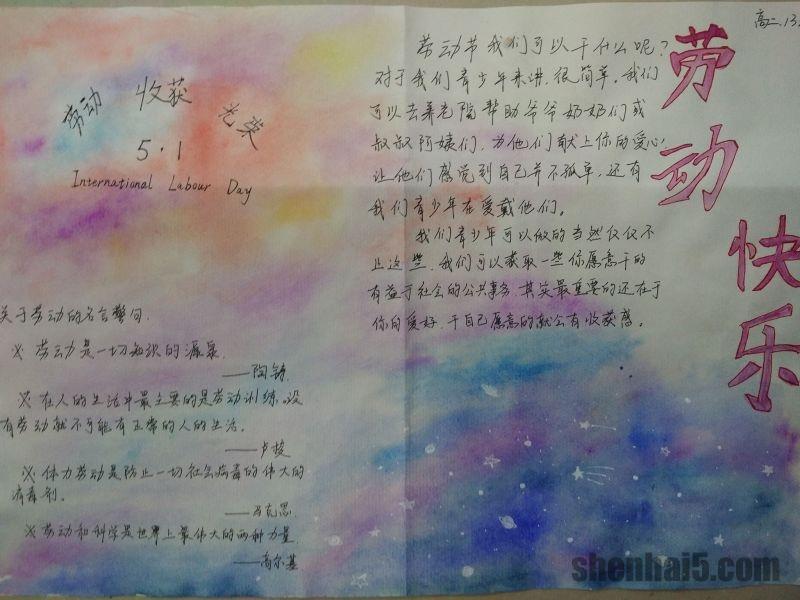 高二.13.
劳动快乐
劳动 收获 光荣
5·1
International Labour Day
劳动节我们可以干什么呢?
对于我们青少年来讲,很简单,我们
可以去养老院帮助爷爷奶奶们或
叔叔阿姨们,为他们献上你的爱心,
让他们感觉到自己并不孤单,还有
我们青少年在爱戴他们。
我们青少年可以做的当然仅仅不
止这些,我们可以获取一些你愿意干的
有益于社会的公共事务,其实最重要的还在于
你的爱好,干自己愿意的就会有收获感。
关于劳动的名言警句.
※ 劳动是一切知识的源泉.
——陶铸.
※ 在人的生活中最主要的是劳动训练.没
有劳动就不可能有正常的人的生活.
——卢梭
※ 体力劳动是防止一切社会病毒的伟大的
消毒剂.
——马克思.
※ 劳动和科学是世界上最伟大的两种力量.
——高尔基
shenhai5.com